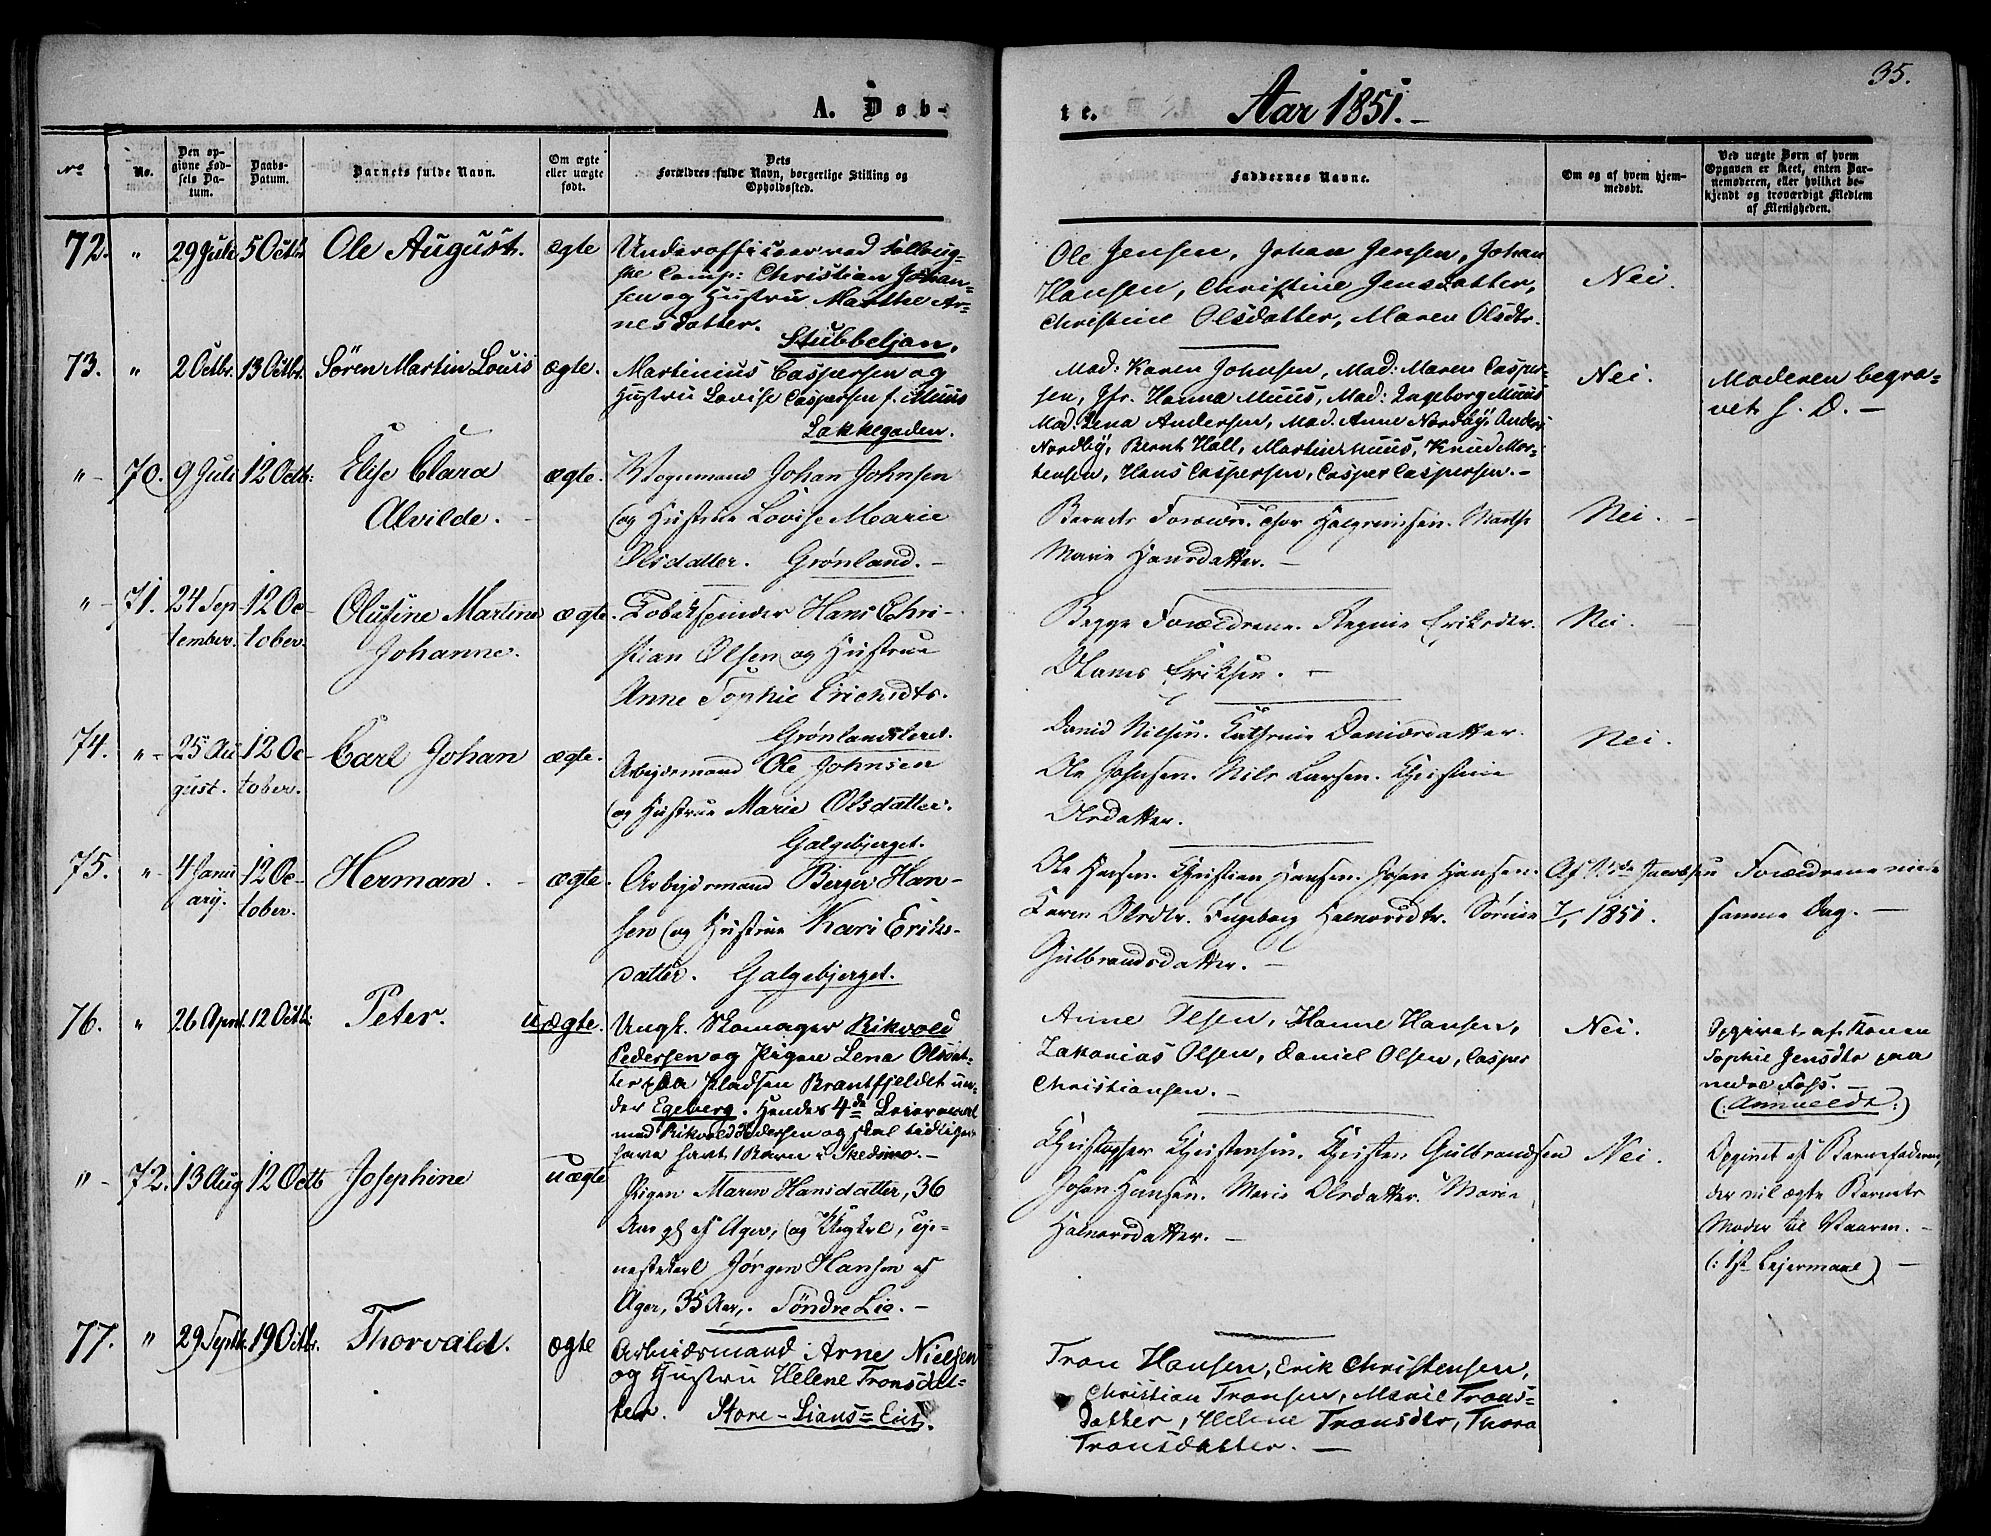 35.
A. Døb-
te.
Aar 1851.-
No
No.
Den op-
givne Fød-
sels Da-
tum.
Daabs-
Datum.
Barnets fulde Navn.
Om ægte
eller uægte
født.
Dets
Forældres fulde Navn, borgerlige Stilling og
Opholdssted.
Faddernes Navne.
Om og af hvem hjem-
medøbt.
Ved uægte Børn af hvem
Opgaven er skeet, enten Bar-
nemoderen, eller hvilket be-
kjendt og troværdigt Medlem
af Menigheden.
72. " 29 Juli 5 Octbr Ole August. ægte
Underofficeer ved
ske Comp: Christian Johan-
sen og Hustru Marthe Ar-
nesdatter.
Stubbeljan.
Ole Jensen, Johan Jensen, Johan
Hansen, Christine Jensdatter,
Christine Olsdatter, Maren Olsdtr.
Nei.
73. " 2 Octbr. 13 Octbr. Sören Martin Louis ægte.
Martinius Caspersen og
Hustru Lovise Caspersen f. Muus
Lakkegaden.
Mad: Karen Johnsen, Mad: Maren Casper-
sen, Jfr. Hanna Muus, Mad: Ingeborg Muus
Mad. Lena Andersen, Mad. Anne Nordby, Anders
Nordby, Bernt Hall, Martin Muus, Knud Mor-
tensen, Hans Caspersen, Casper Caspersen.-
Nei.
Moderen begra-
vet s. D. -
" - 70. 9 Juli 12 Octb: Elise Clara
Alvilde.
ægte.
Vognmand Johan Johnsen
og Hustrue Lovise Marie
Olsdatter. Grønland. -
Barnets Forældre. Thor Halgrimsen. Marthe
Marie Hansdatter. -
Nei. -
" - 71. 24 Sep-
tember.
12 Oc-
tober.
Olufine Martine
Johanne.
ægte.
Tobakspinder Hans Chri-
stian Olsen og Hustrue
Anne Sophie Erichsdtr.
Grønlandsleret.
Begge Forældrene. Regine Eriksdtr.
Olaves Eriksen. -
Nei. -
74. " - 25 Au-
gust.
12 Oc-
tober.
Carl Johan ægte.
Arbejdsmand Ole Johnsen
og Hustrue Marie Olsdatter.
Galgebjerget.
David Nilsen. Cathrine Danielsdatter.
Ole Johnsen. Nils Larsen. Christine
Olsdatter.
Nei.
75. " - 4 Janu-
arij.
12 Oc-
tober.
Herman. - ægte.
Arbejdsmand Berger Han-
sen og Hustrue Kari Eriks-
datter. Galgebjerget.
Ole Hansen. Christian Hansen. Johan Hansen.
Karen Olsdtr. Ingeborg Halvorsdtr. Sørine
Gulbrandsdatter. -
Af Jacobsen
7/1 1851.
Forældrene
samme Dag. -
76. " 26 April 12 Octb: Peter. uægte.
Ungk. Skomager Rikvold
Pedersen og Pigen Lena Olsdat-
ter fra Pladsen Brantfjeldet un-
der Egeberg. Hendes 4de Leiermaal
med Rikvold Pedersen og skal tidligere
have havt 1 Barn i Skedsmo. -
Anne Olsen, Hanne Hansen,
Zakarias Olsen, Daniel Olsen, Casper
Christiansen. -
Nei.
Opgivet af Konen
Sophie Jensdtr paa
nedre Foss.
(: Anmeldt :)
" - 72. 13 Aug 12 Octb Josephine uægte
Pigen Maren Hansdatter, 36
Aar gl. af Ager, og Ungkrl, tje-
nestekarl Jørgen Hansen af
Ager, 35 Aar,. Søndre Lie. -
Christopher Christensen. Christen Gulbrandsen
Johan Hansen. Marie Olsdatter. Marie
Halvorsdatter. -
Nei.
Opgivet af Barnefaderen,
der vil ægte Barnets
Moder til Vaaren. -
(: 1ste Lejermaal) -
77. " 29 Septb. 19 Octbr. Thorvald. ægte
Arbeidsmand Arne Nielsen
og Hustru Helene Tronsdat-
ter. Store-Lians-Eie.
Tron Hansen, Erik Christensen,
Christian Tronsen, Marie Trons-
datter, Helene Tronsdtr, Thora
Tronsdatter. -